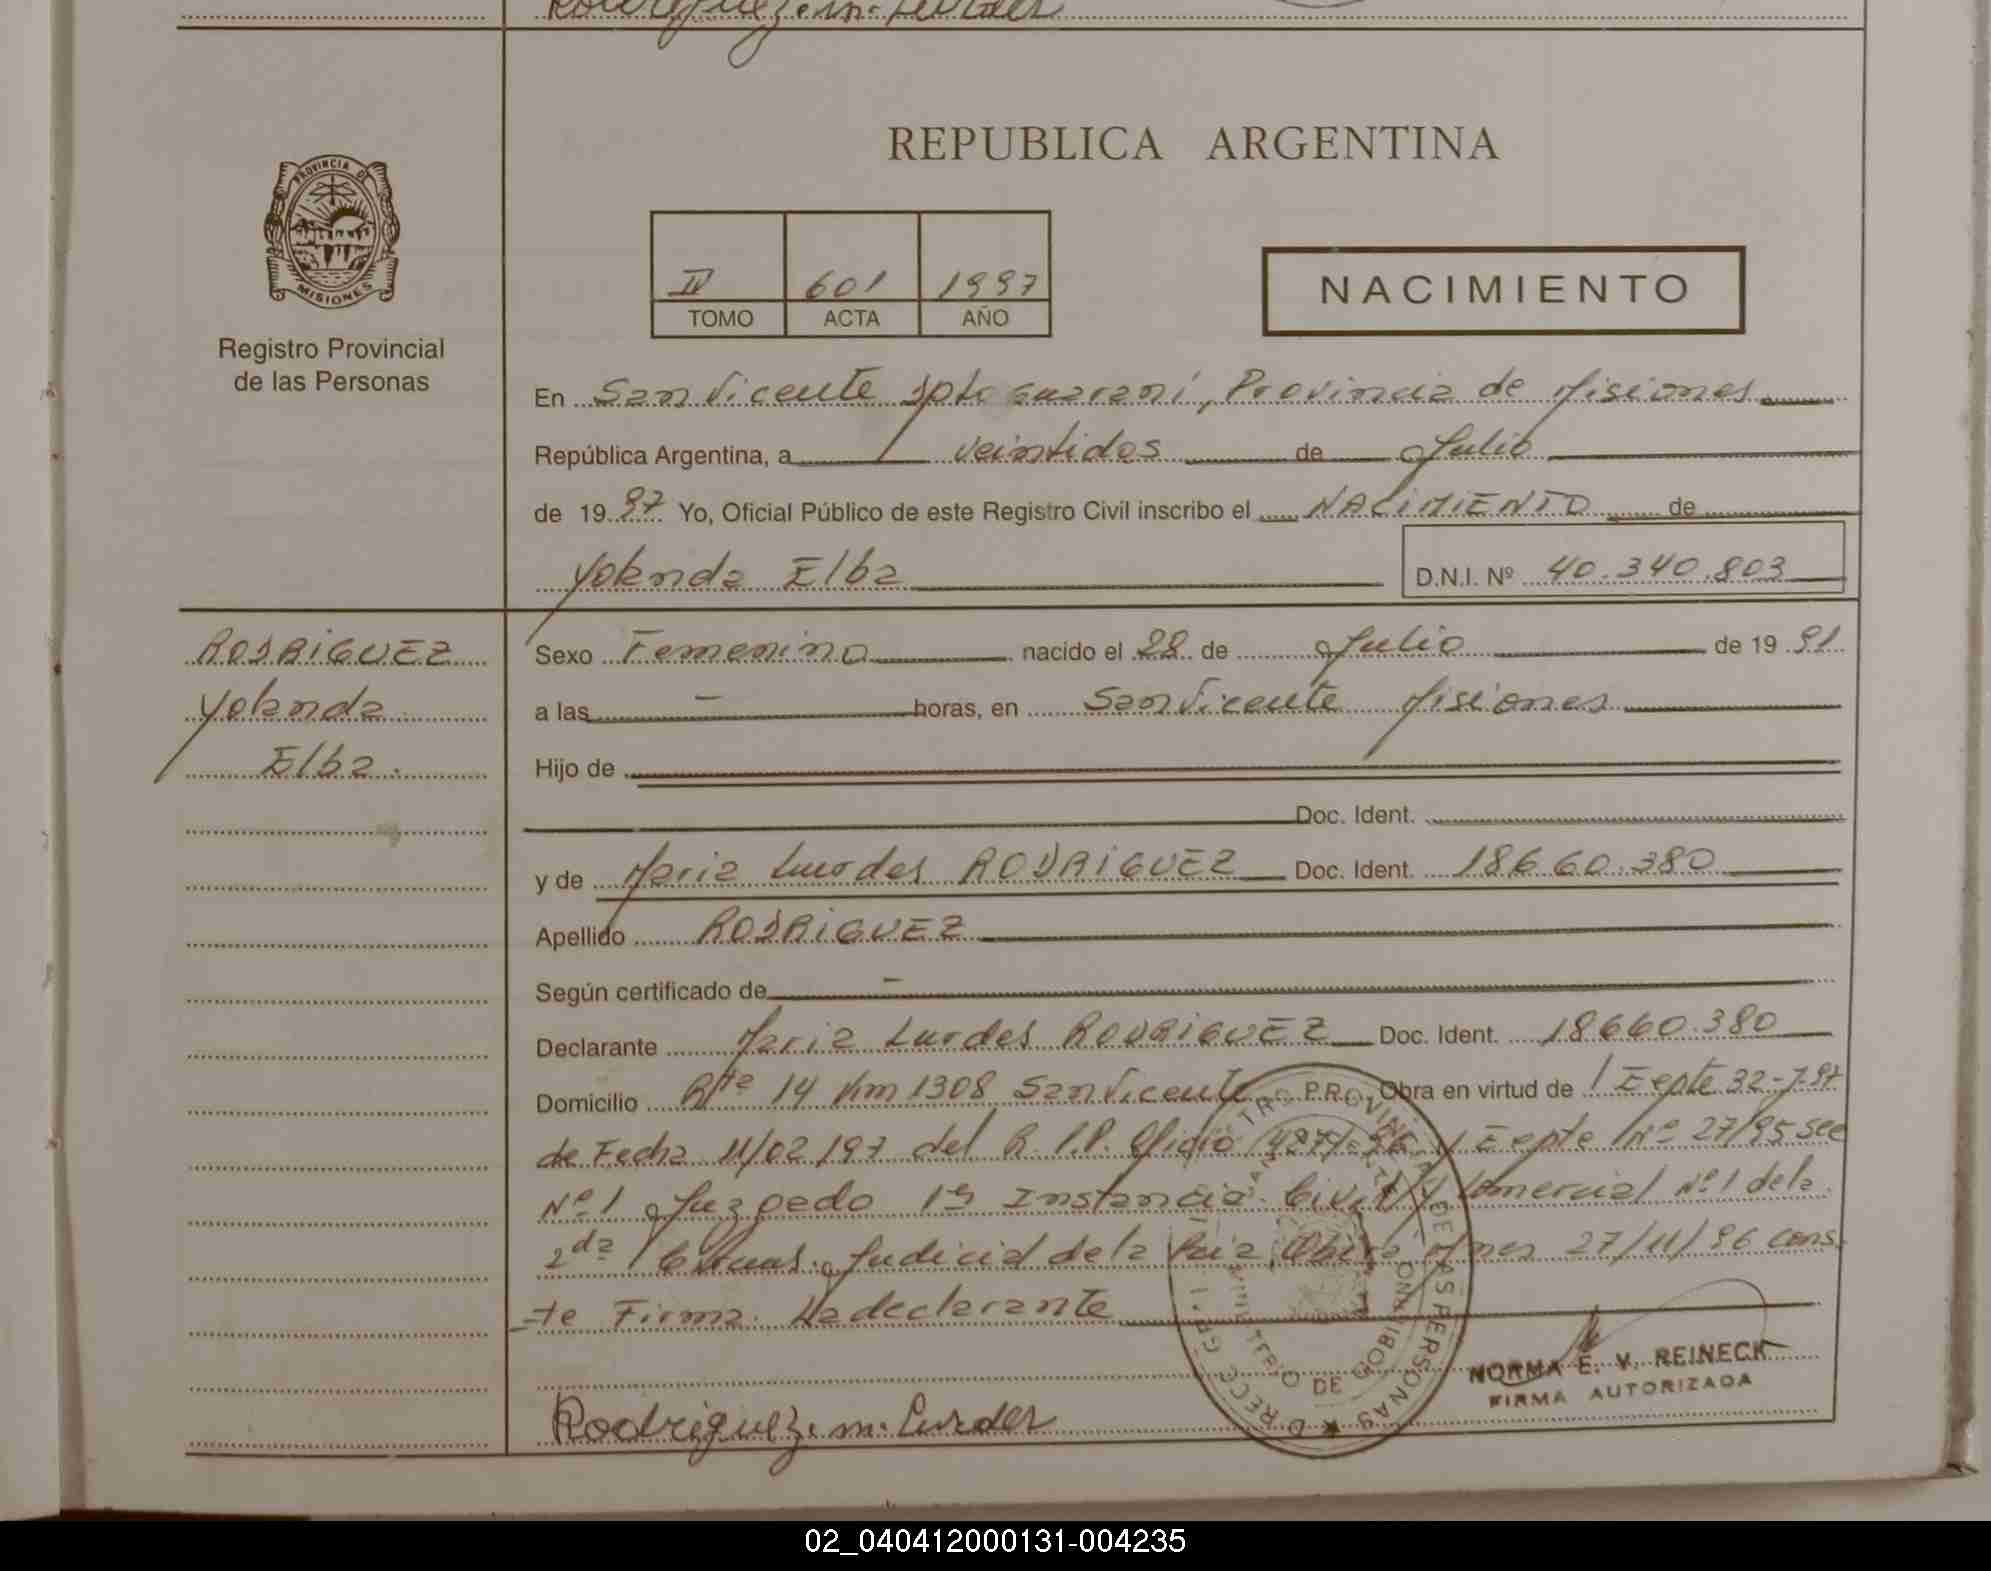 Rodriguez. m. Lurdes
PROVINCIA DE
MISIONES
Registro Provincial
de las Personas
REPUBLICA ARGENTINA
IV 601 1997
TOMO ACTA AÑO
NACIMIENTO
En San Vicente Dpto Guarani, Provincia de Misiones
República Argentina, a veintidos de Julio
de 1997 Yo, Oficial Público de este Registro Civil inscribo el NACIMIENTO de
Yolanda Elba D.N.I. Nº 40.340.803
RODRIGUEZ
Yolanda
Elba.
Sexo Femenino nacido el 28 de Julio de 1991
a las - horas, en San Vicente Misiones
Hijo de
Doc. Ident.
y de Maria Lurdes RODRIGUEZ Doc. Ident. 18660.380
Apellido RODRIGUEZ
Según certificado de -
Declarante Maria Lurdes RODRIGUEZ Doc. Ident. 18660.380
Domicilio Rta 14 Km 1308 San Vicente Obra en virtud de Expte 32-7-97
de Fecha 11/02/97 del R.P.P. Oficio 427/96 y Expte Nº 27/95 Sec
Nº 1 Juzgado 1ra Instancia Civil y Comercial Nº 1 de la
2da Judicial de la 27/11/96 cons.
-te Firma. La declarante
NORMA E. V. REINECK
FIRMA AUTORIZADA
Rodriguez. m. Lurdes
02_040412000131-004235